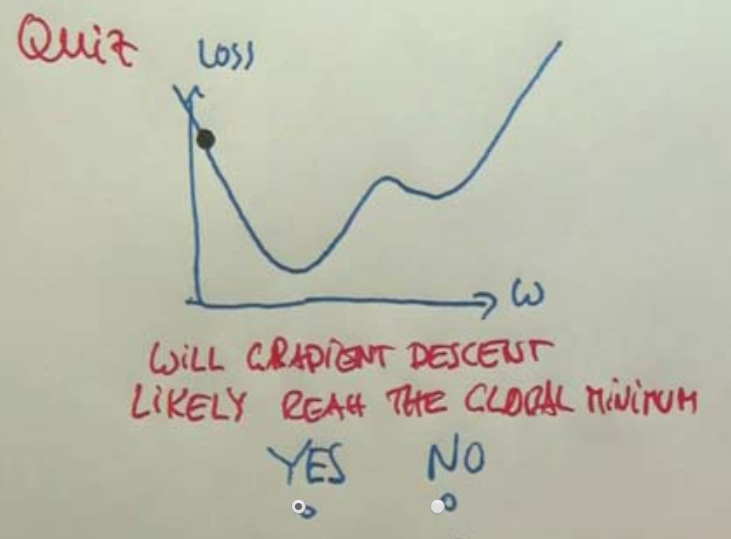 Quiz
LOSS
ω
WILL GRADIENT DESCENT
LIKELY REAH THE GLOBAL MINIMUM
YES NO